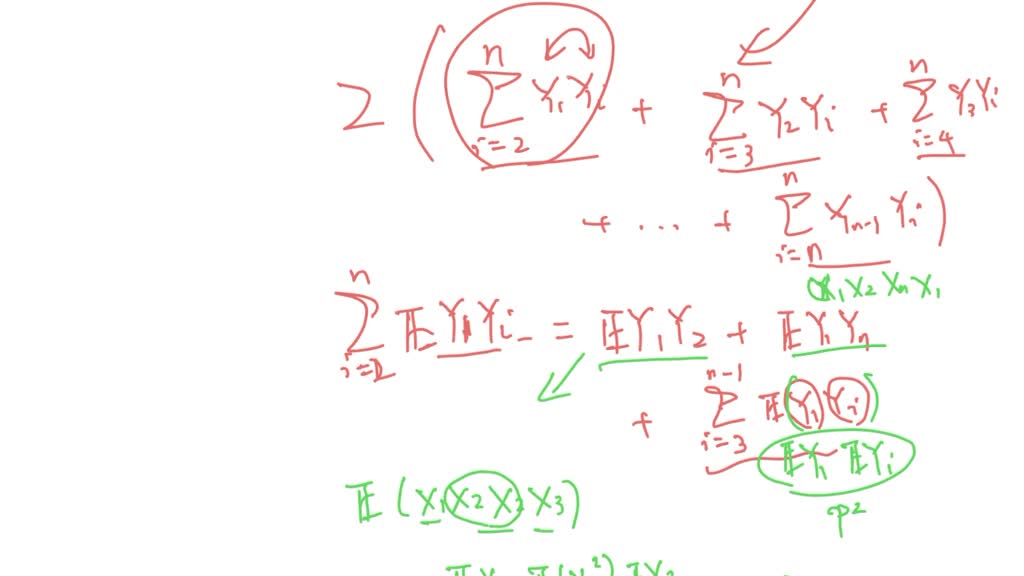 2 ( \sum_{i=2}^{n} Y_1 Y_i + \sum_{i=3}^{n} Y_2 Y_i + \sum_{i=4}^{n} Y_3 Y_i
+ ... + \sum_{i=n}^{n} Y_{n-1} Y_i )
X_1 X_2 X_n X_1
\sum_{i=2}^{n} 𝔼 Y_1 Y_i = 𝔼 Y_1 Y_2 + 𝔼 Y_1 Y_n
+ \sum_{i=3}^{n-1} 𝔼 Y_1 Y_i
𝔼 Y_1 𝔼 Y_i
p^2
𝔼 ( X_1 X_2 X_2 X_3 )